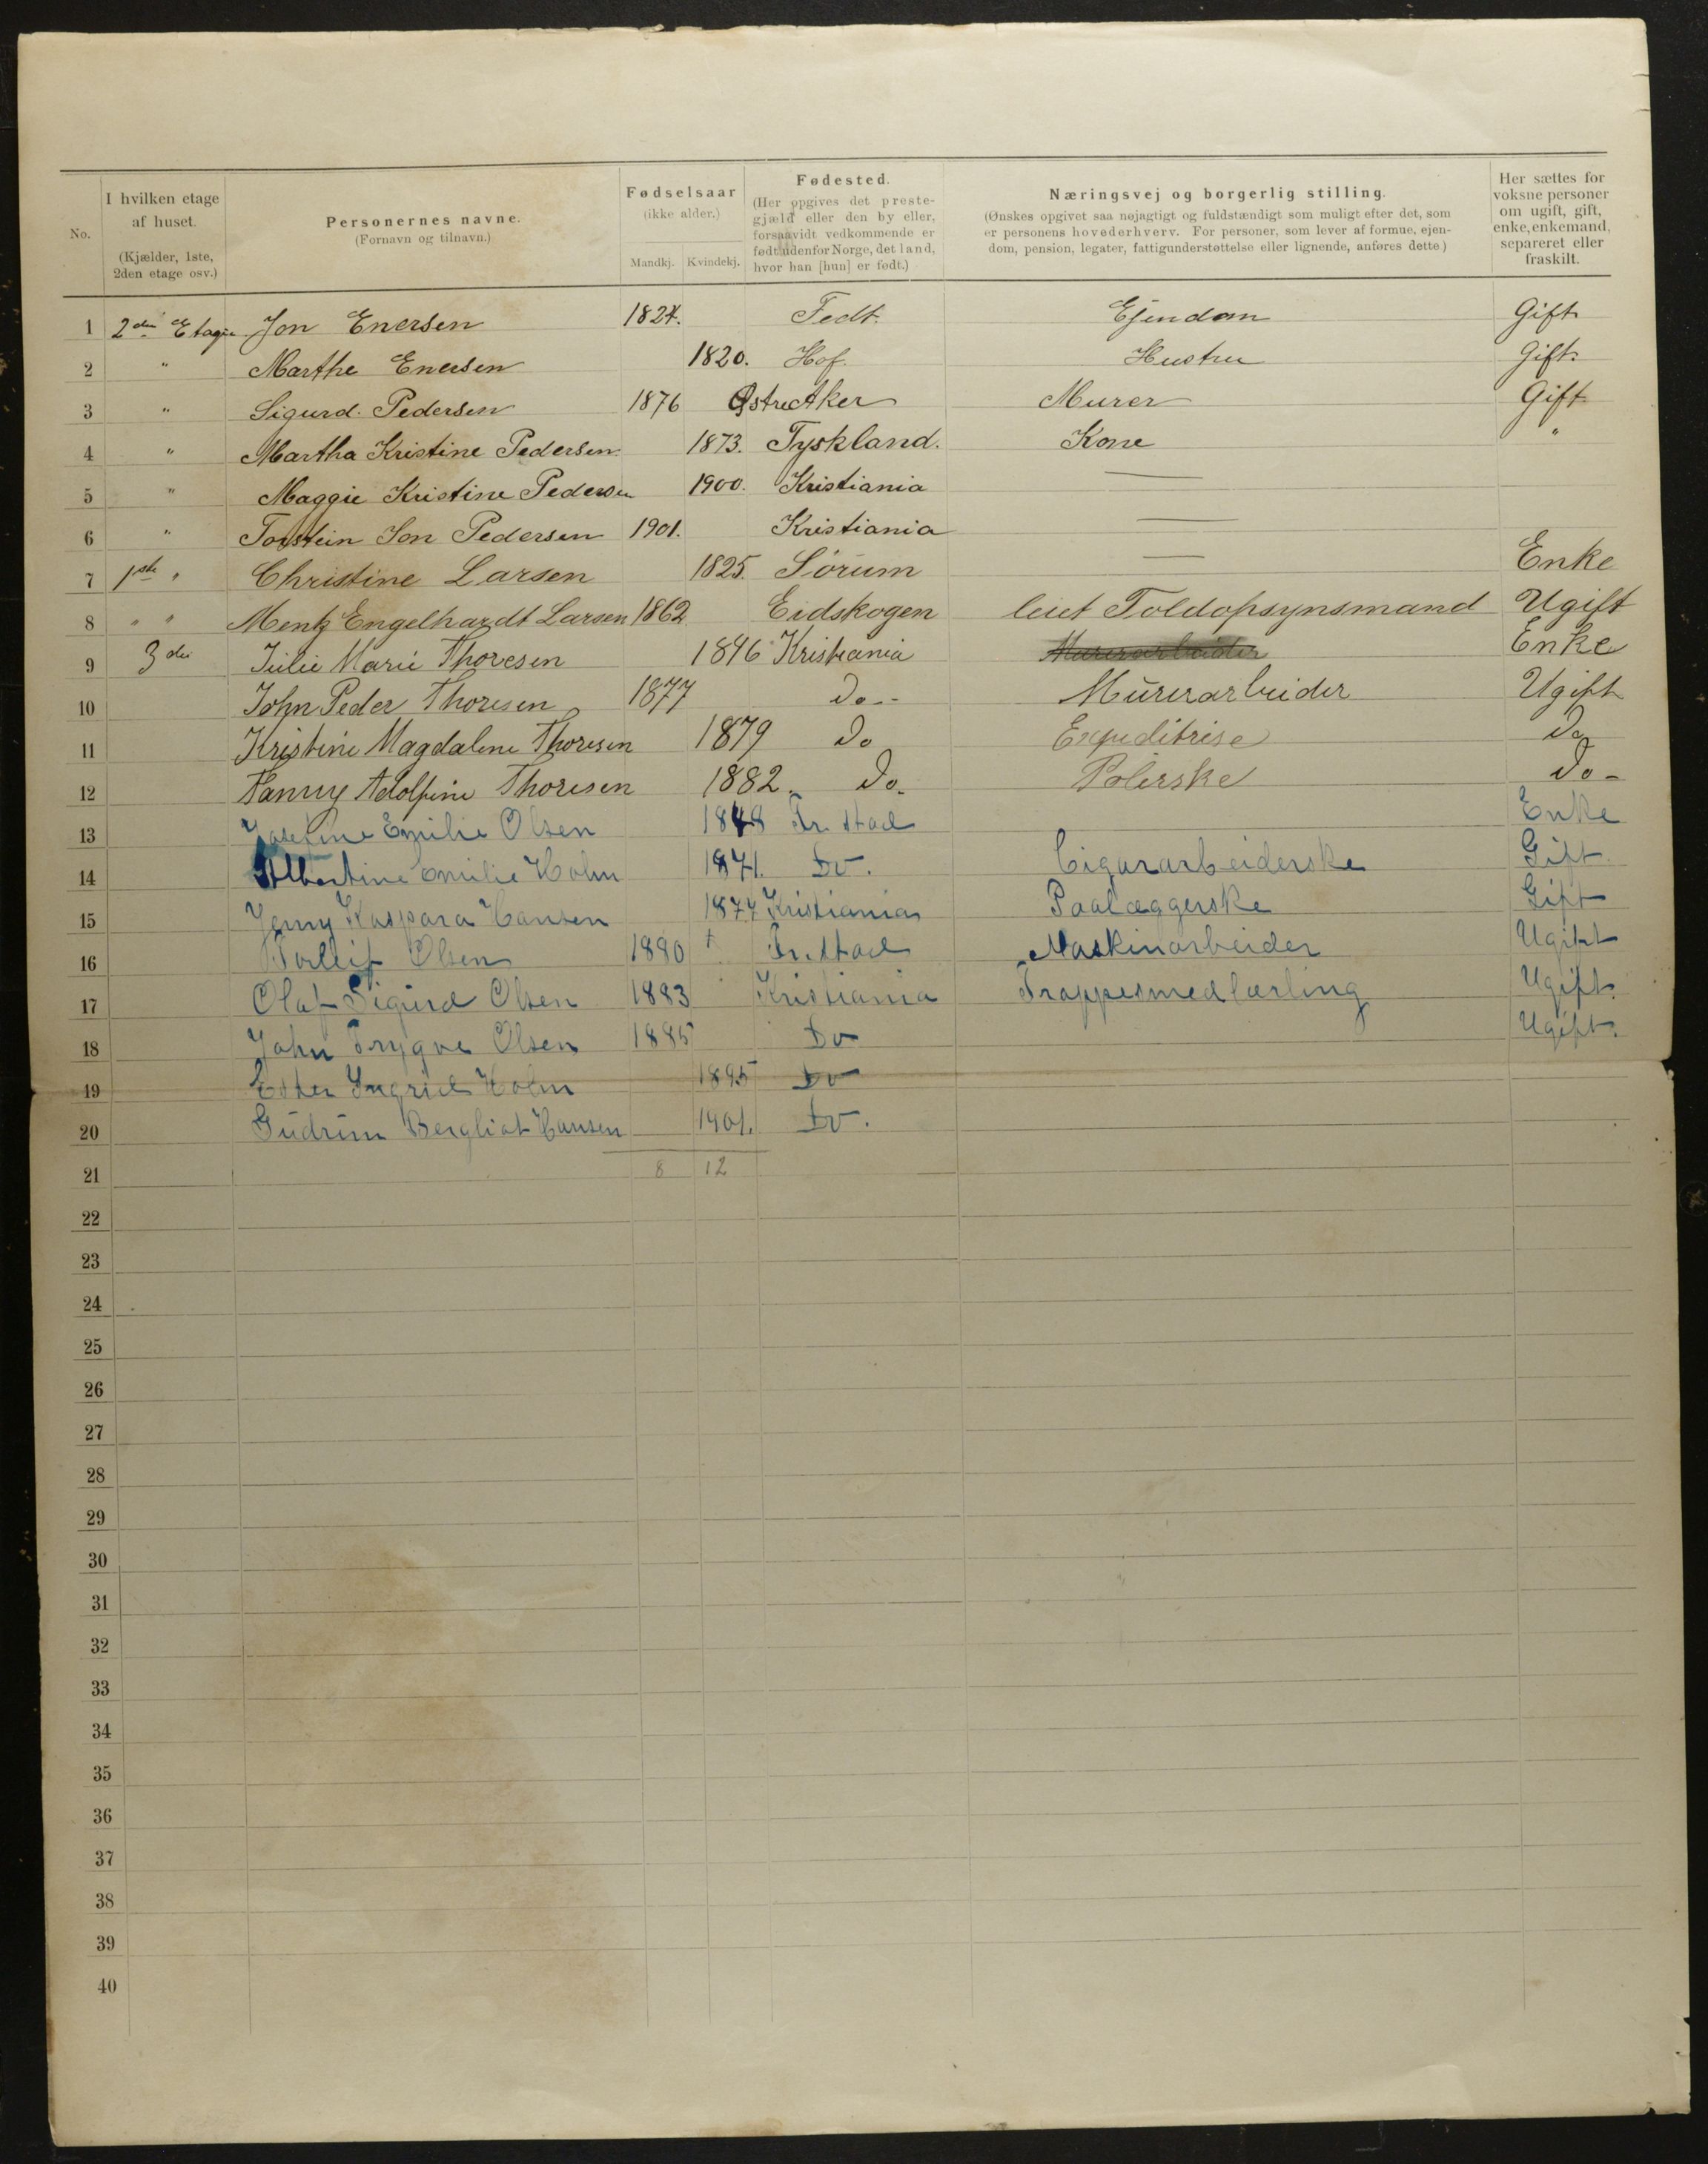 No. I hvilken etage af huset. (Kjælder, 1ste, 2den etage osv.) Personernes navne. (Fornavn og tilnavn.) Fødselsaar (ikke alder.) Mandkj. Kvindekj. Fødested. (Her opgives det prestegjæld eller den by eller, forsaavidt vedkommende er født udenfor Norge, det land, hvor han [hun] er født.) Næringsvej og borgerlig stilling. (Ønskes opgivet saa nøjagtigt og fuldstændigt som muligt efter det, som er personens hovederhverv. For personer, som lever af formue, ejendom, pension, legater, fattigunderstøttelse eller lignende, anføres dette) Her sættes for voksne personer om ugift, gift, enke, enkemand, separeret eller fraskilt.
1 2den Etage Jon Enersen 1824. Tedt. Ejendom Gift
2 " Marthe Enersen 1820. Hof. Hustru Gift.
3 " Sigurd Pedersen 1876 Østre Aker Murer Gift
4 " Martha Kristine Pedersen 1873. Tyskland. Kone "
5 " Maggie Kristine Pedersen 1900. Kristiania —
6 " Torstein Jon Pedersen 1901. Kristiania —
7 1ste " Christine Larsen 1825. Sórum — Enke
8 " " Mentz Engelhardt Larsen 1862 Eidskogen leiet Toldopsynsmand Ugift
9 3die Julie Marie Thoresen 1846 Kristiania Murerarbeider Enke
10 John Peder Thoresen 1877 Do-- Murerarbeider Ugift
11 Kristine Magdalene Thoresen 1879 Do Expeditrise Do
12 Fanny Adolfine Thoresen 1882. Do. Polerske Do-
13 Josefine Emilie Olsen 1848 Fr. stad Enke
14 Albertine Emilie Holm 1871. Do. Cigararbeiderske Gift.
15 Jenny Kaspara Hansen 1877 Kristiania Paalæggerske Gift
16 Torleif Olsen 1880 Fr. stad Maskinarbeider Ugift
17 Olaf Sigurd Olsen 1883 Kristiania Trappesmedlærling Ugift.
18 John Trygve Olsen 1885 Do Ugift.
19 Ester Ingrid Holm 1895 Do
20 Gudrun Bergliot Hansen 1901. Do.
21 8 12
22
23
24
25
26
27
28
29
30
31
32
33
34
35
36
37
38
39
40